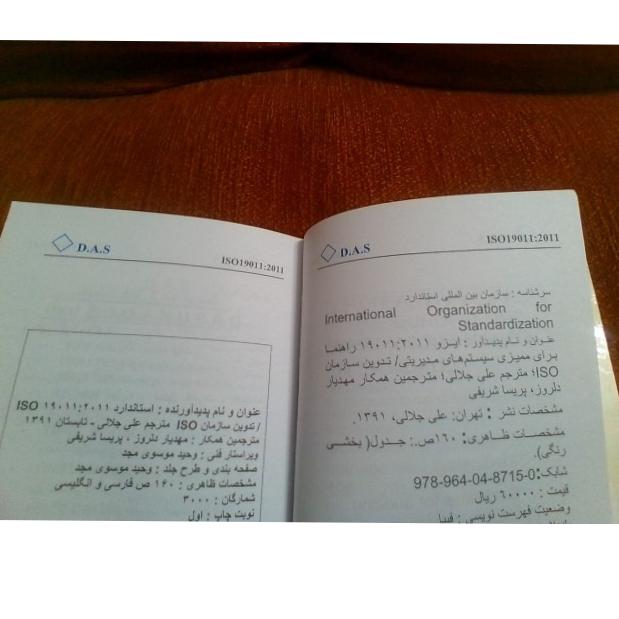 D.A.S
ISO19011:2011
سرشناسه : سازمان بین المللی استاندارد
International Organization for
Standardization
عنوان و نام پدیدآور : ایزو ۱۹۰۱۱:۲۰۱۱ راهنما
برای ممیزی سیستم‌های مدیریتی/ تدوین سازمان
ISO؛ مترجم علی جلالی؛ مترجمین همکار مهدیار
دلروز، پریسا شریفی
مشخصات نشر : تهران: علی جلالی، ۱۳۹۱.
مشخصات ظاهری: ۱۶۰ص.: جدول( بخشی
رنگی).
شابک:978-964-04-8715-0
قیمت : ۶۰۰۰۰ ریال
وضعیت فهرست نویسی : فیپا
D.A.S
ISO19011:2011
عنوان و نام پدیدآورنده : استاندارد ISO ۱۹۰۱۱:۲۰۱۱
/ تدوین سازمان ISO مترجم علی جلالی - تابستان ۱۳۹۱
مترجمین همکار : مهدیار دلروز ، پریسا شریفی
ویراستار فنی : وحید موسوی مجد
صفحه بندی و طرح جلد : وحید موسوی مجد
مشخصات ظاهری : ۱۶۰ ص فارسی و انگلیسی
شمارگان : ۳۰۰۰
نوبت چاپ : اول